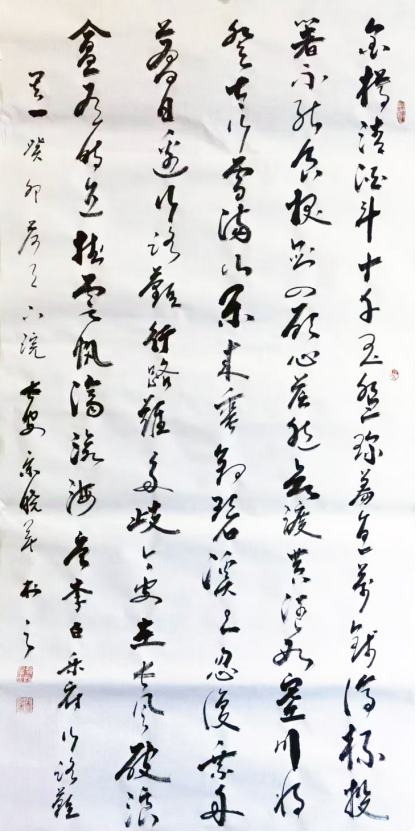 金樽清酒斗十千玉盘珍羞直万钱停杯投
箸不能食拔剑四顾心茫然欲渡黄河冰塞川将
登太行雪满山闲来垂钓碧溪上忽复乘舟
梦日边行路难行路难多歧路今安在长风破浪
会有时直挂云帆济沧海 李白乐府行路难
其一 癸卯 长安 晓